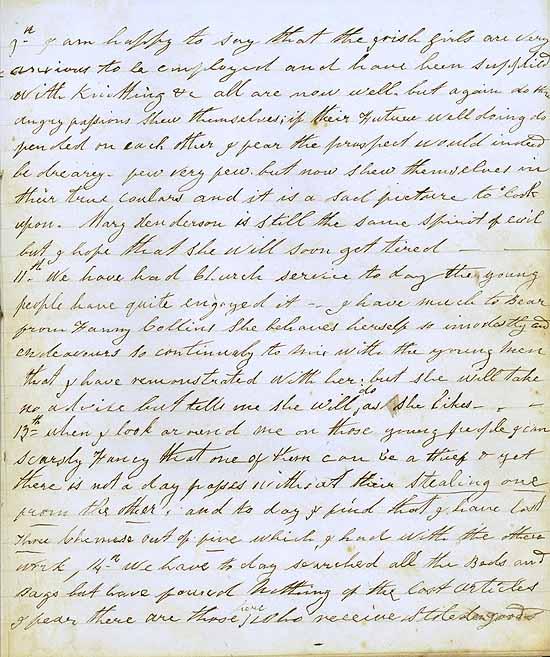 9th I am happy to say that the Irish girls are very
anxious to be employed and have been supplied
with Knitting &c all are now well. but again do the
angry passions shew themselves; if their Future well doing de
pended on each other I fear the prospect would indeed
be dreary - few very few. but now shew themselves in
their true coulars and it is a sad picture to look
upon. Mary Henderson is still the same spirit of evil
but I hope that she will soon get tired
11th We have had Church service to day the young
people have quite engoyed it - I have much to Bear
from Fanny Collins she behaves herself so imodestly and
endeavours so continuly to mix with the young men
that I have remonstrated with her; but she will take
no advise but tells me she will do as she likes -
13th when I look around me on those young people I can
scarsly Fancy that one of them can be a thief & yet
there is not a day passes without their stealing one
from the other; and to day I find that I have lost
Three Chemise out of five which I had with the other
work, 14th We have to day searched all the Beds and
Bags but have found Nothing of the Lost articles
I fear there are those here who receive stolen goods